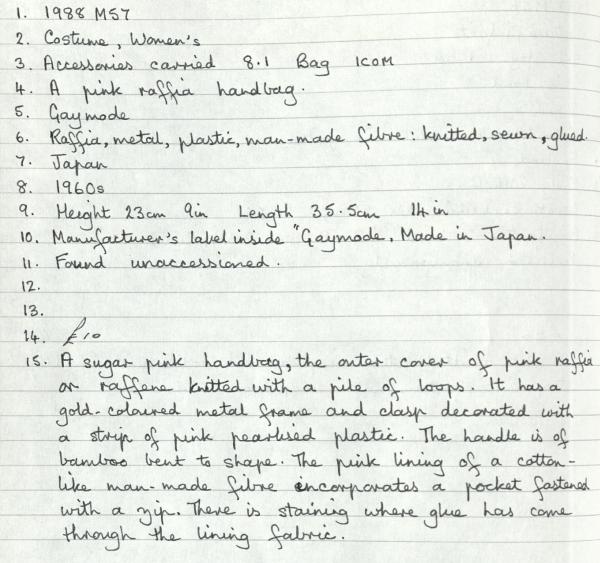 1. 1988 M57
2. Costume, Women's
3. Accessories carried 8.1 Bag ICOM
4. A pink raffia handbag.
5. Gaymode
6. Raffia, metal, plastic, man-made fibre : knitted, sewn, glued.
7. Japan
8. 1960s
9. Height 23cm 9in Length 35.5cm 14in
10. Manufacturer's label inside "Gaymode, Made in Japan.
11. Found unaccessioned.
12.
13.
14. £10
15. A sugar pink handbag, the outer cover of pink raffia
or raffene knitted with a pile of loops. It has a
gold-coloured metal frame and clasp decorated with
a strip of pink pearlised plastic. The handle is of
bamboo bent to shape. The pink lining of a cotton-
like man-made fibre incorporates a pocket fastened
with a zip. There is staining where glue has come
through the lining fabric.